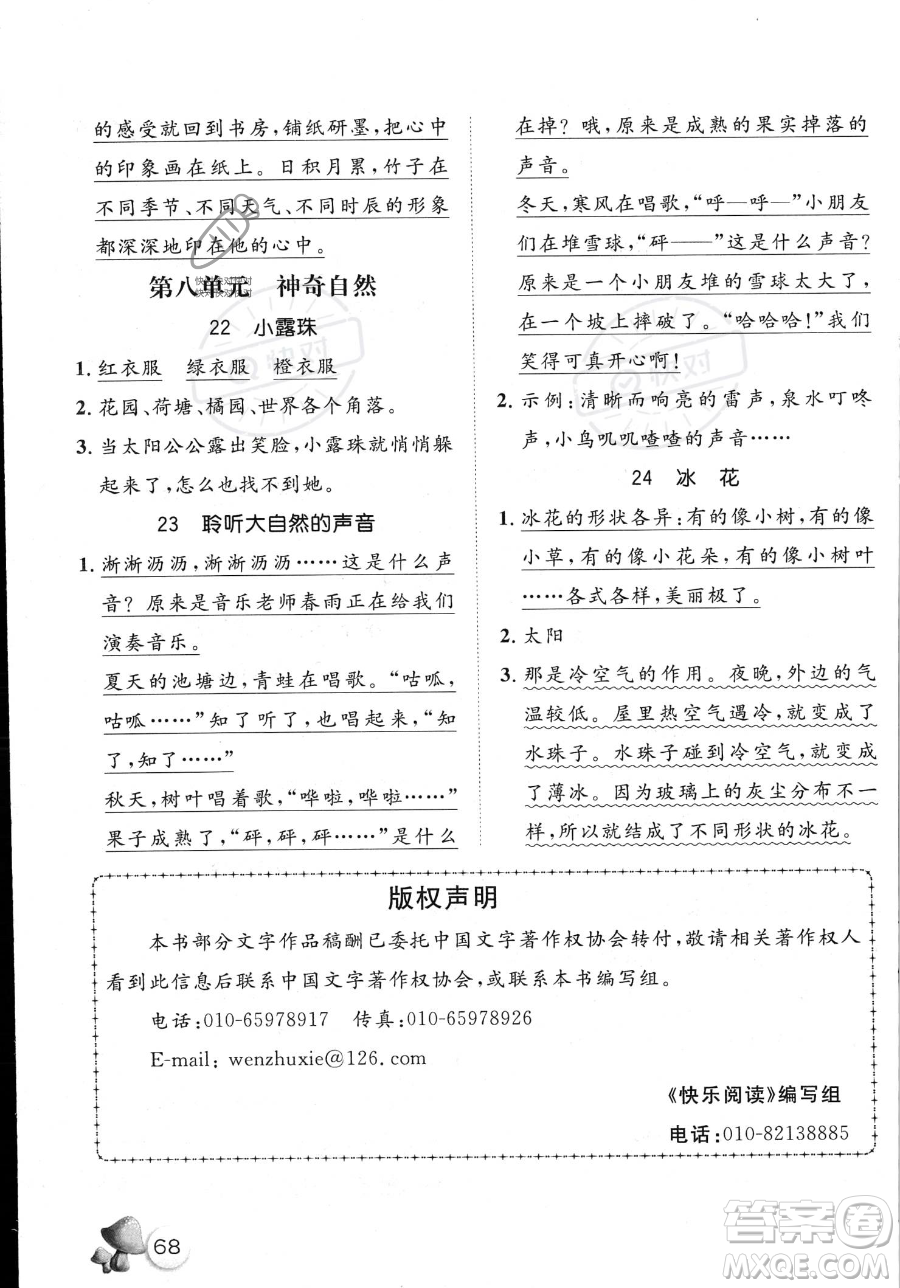 的感受就回到书房，铺纸研墨，把心中
的印象画在纸上。日积月累，竹子在
不同季节、不同天气、不同时辰的形象
都深深地印在他的心中。
第八单元 神奇自然
22 小露珠
1. 红衣服 绿衣服 橙衣服
2. 花园、荷塘、橘园、世界各个角落。
3. 当太阳公公露出笑脸，小露珠就悄悄躲
起来了，怎么也找不到她。
23 聆听大自然的声音
1. 淅淅沥沥，淅淅沥沥……这是什么声
音？原来是音乐老师春雨正在给我们
演奏音乐。
夏天的池塘边，青蛙在唱歌。“咕呱，
咕呱……”知了听了，也唱起来，“知
了，知了……”
秋天，树叶唱着歌，“哗啦，哗啦……”
果子成熟了，“砰，砰，砰……”是什么
在掉？哦，原来是成熟的果实掉落的
声音。
冬天，寒风在唱歌，“呼—呼—”小朋友
们在堆雪球，“砰——”这是什么声音？
原来是一个小朋友堆的雪球太大了，
在一个坡上摔破了。“哈哈哈！”我们
笑得可真开心啊！
2. 示例：清晰而响亮的雷声，泉水叮咚
声，小鸟叽叽喳喳的声音……
24 冰 花
1. 冰花的形状各异：有的像小树，有的像
小草，有的像小花朵，有的像小树叶
……各式各样，美丽极了。
2. 太阳
3. 那是冷空气的作用。夜晚，外边的气
温较低。屋里热空气遇冷，就变成了
水珠子。水珠子碰到冷空气，就变成
了薄冰。因为玻璃上的灰尘分布不一
样，所以就结成了不同形状的冰花。
版权声明
本书部分文字作品稿酬已委托中国文字著作权协会转付，敬请相关著作权人
看到此信息后联系中国文字著作权协会，或联系本书编写组。
电话：010-65978917 传真：010-65978926
E-mail：wenzhuxie@126.com
《快乐阅读》编写组
电话：010-82138885
68
答案卷
MXQE.COM
快对
快对